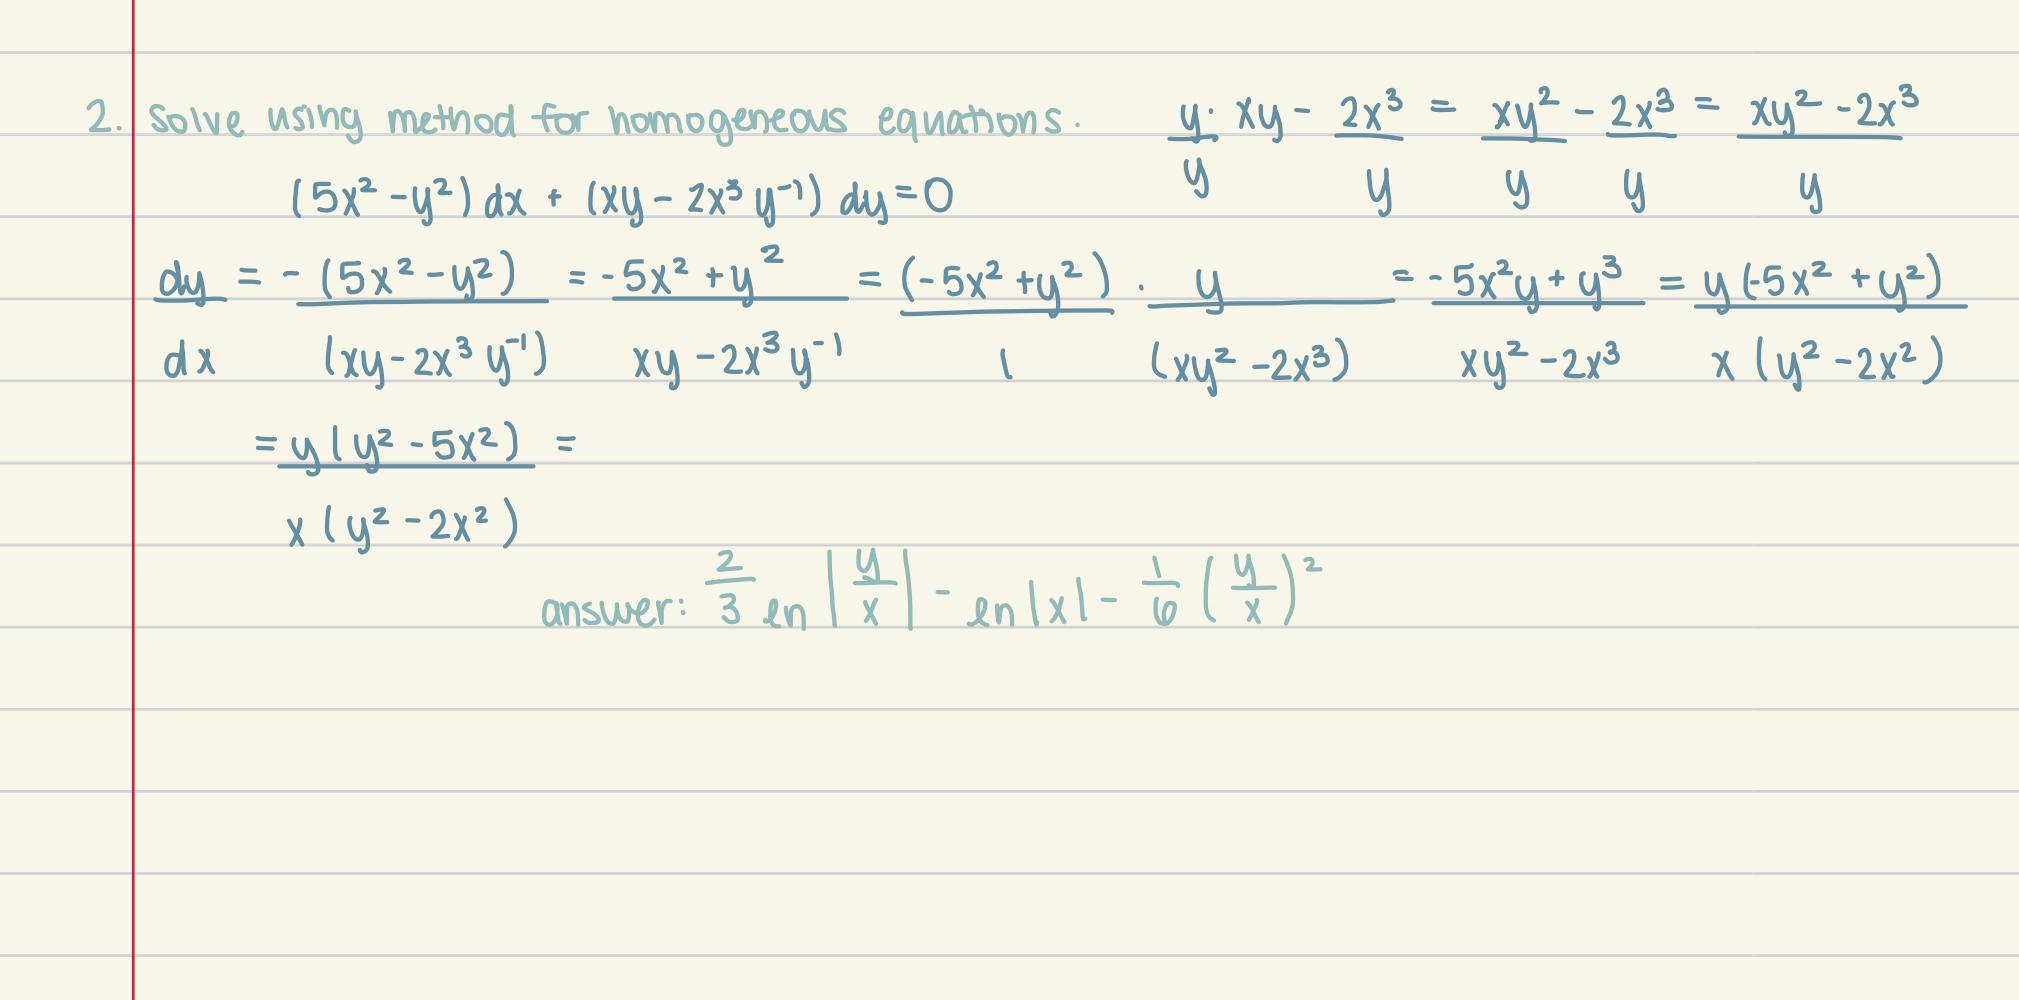 2. Solve using method for homogeneous equations.
y/y · xy - 2x³/y = xy²/y - 2x³/y = (xy² - 2x³)/y
(5x² - y²) dx + (xy - 2x³ y⁻¹) dy = 0
dy/dx = -(5x² - y²)/(xy - 2x³ y⁻¹) = (-5x² + y²)/(xy - 2x³ y⁻¹) = (-5x² + y²)/1 · y/(xy² - 2x³) = (-5x²y + y³)/(xy² - 2x³) = y(-5x² + y²)/x(y² - 2x²)
= y(y² - 5x²)/x(y² - 2x²) =
answer: 2/3 ln |y/x| - ln|x| - 1/6 (y/x)²